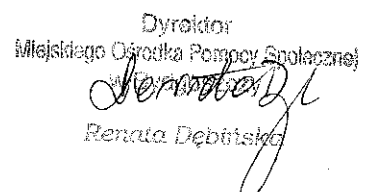 Dyrektor
Miejskiego Ośrodka Pomocy Społecznej
w
Renata Dębińska